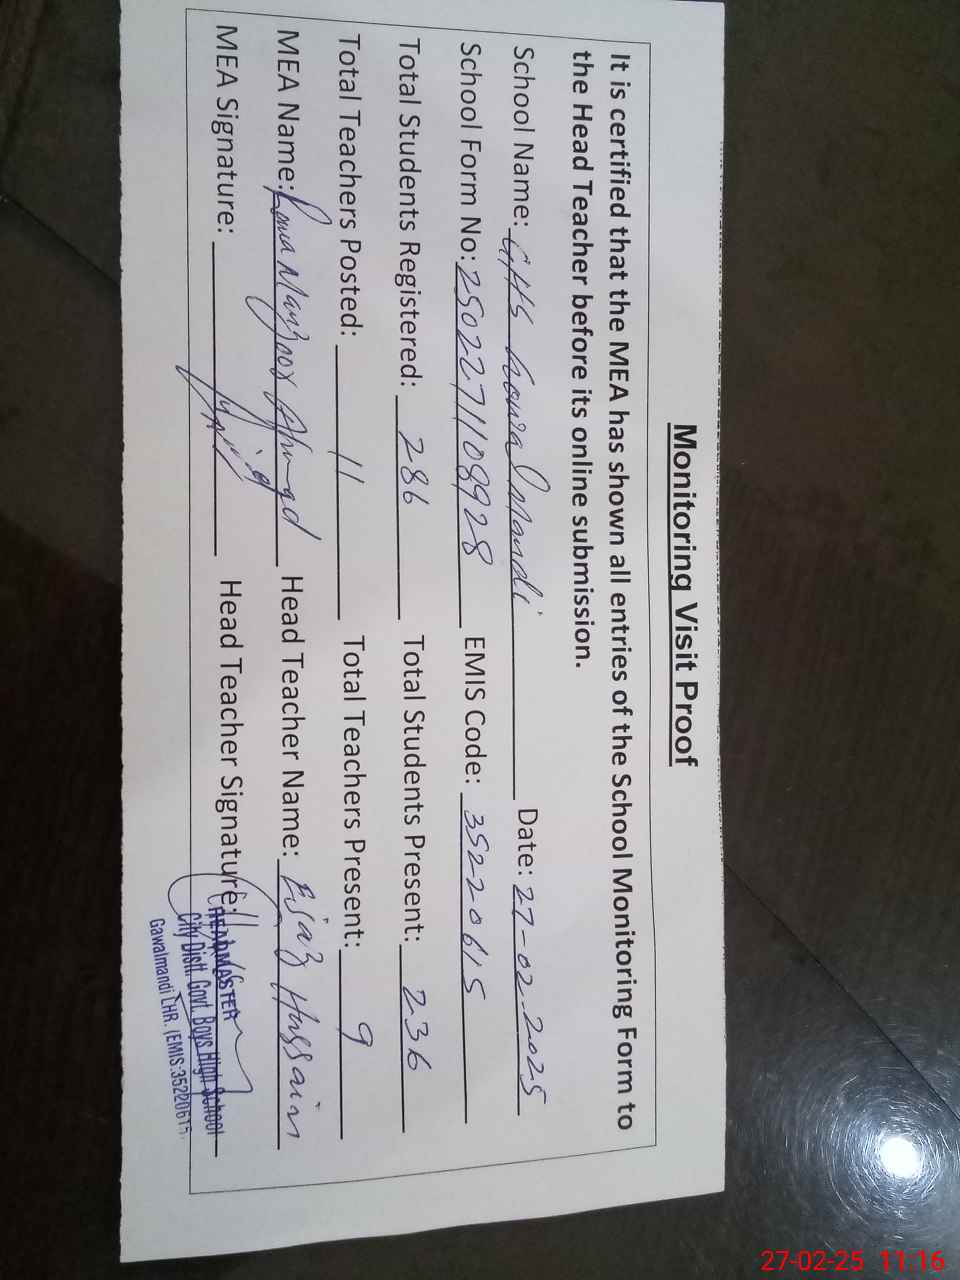 Monitoring Visit Proof
It is certified that the MEA has shown all entries of the School Monitoring Form to
the Head Teacher before its online submission.
School Name: GHS Mandi Date: 27-02-2025
School Form No: 2502271108928 EMIS Code: 35220615
Total Students Registered: 286 Total Students Present: 236
Total Teachers Posted: 11 Total Teachers Present: 9
MEA Name: Rana Manzoor Ahmad Head Teacher Name: Ejaz Hussain
MEA Signature: Head Teacher Signature:
HEADMASTER
City Distt. Govt. Boys High School
Gawalmandi LHR. (EMIS:35220615.
27-02-25 11:16